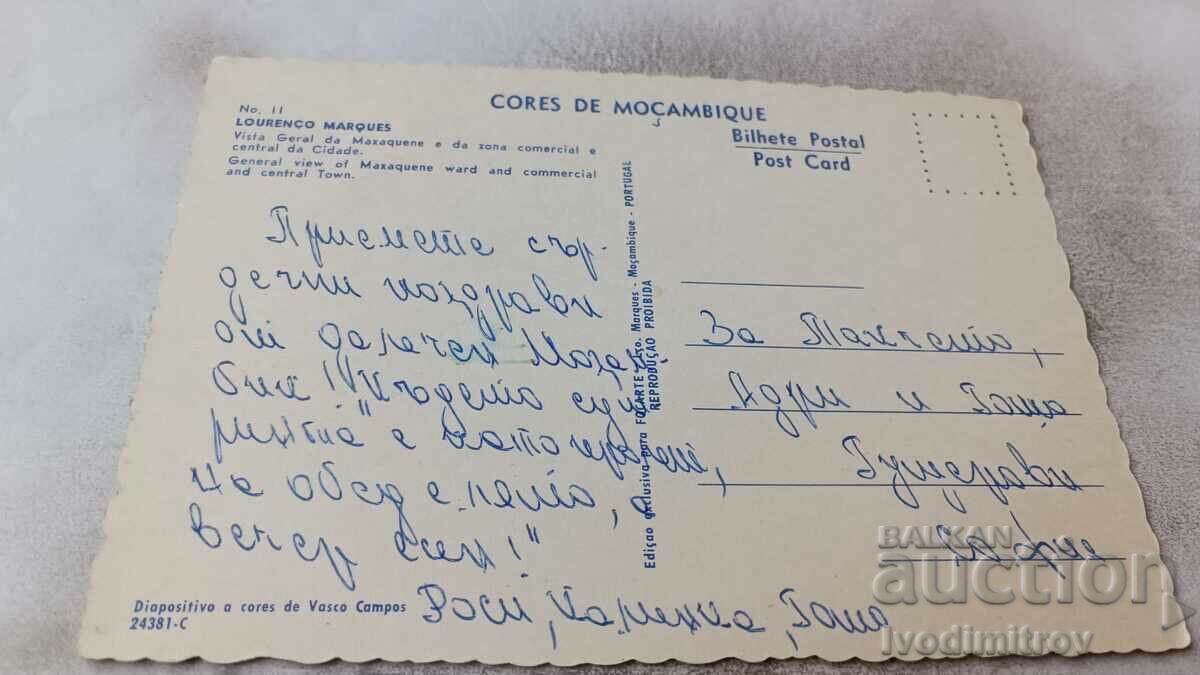 CORES DE MOÇAMBIQUE
No. 11
LOURENÇO MARQUES
Vista Geral da Maxaquene e da zona comercial e
central da Cidade.
General view of Maxaquene ward and commercial
and central Town.
Bilhete Postal
Post Card
Приемете сър-
дечни поздрави
от далечен Мозам
бик! "Където сут
ринта е като
на обед е лято, а
вечер
Роси, Каменка, Гошо
Edição exclusiva para FOCARTE - Lço. Marques - Moçambique - PORTUGAL
REPRODUÇÃO PROIBIDA
За
Адри и Гошо
Гушерови
София
Diapositivo a cores de Vasco Campos
24381-C
BALKAN
auction
Ivodimitrov